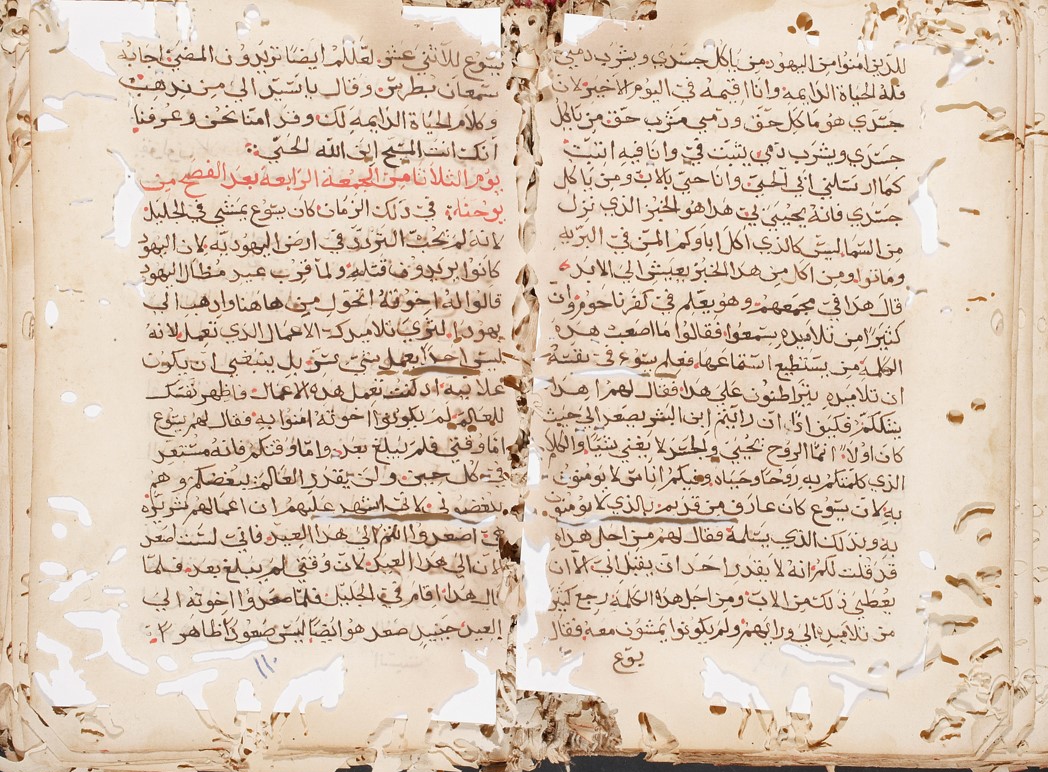 للدين امنوا من اليهود من ياكل جسدي ويشرب دمي
فله الحياة الدايمه وانا اقيمه في اليوم الاخير لان
جسدي هو ماكل حق ودمي مشرب حق من ياكل
جسدي ويشرب دمي يثبت في وانا فيه اثبت
كما ارسلني ابي الحي وانا حي بالاب ومن ياكل
جسدي فانه يحيى بي هدا هو الخبز الذي نزل
من السما ليس كالذي اكل اباوكم المن في البريه
وماتوا ومن اكل من هدا الخبز يعيش الى الابد
قال هدا في مجمعهم وهو يعلم في كفرناحوم وان
كثيرا من تلاميده سمعوا فقالوا ما اصعب هده
الكلمه من يستطيع استماعها فعلم يسوع في نفسه
ان تلاميده يتراطنون على هدا فقال لهم اهدا
يشككم فكيف ادا ان رايتم ابن البشر يصعد الى حيث
كان اولا انما الروح يحيي والجسد لا يغني شيئا والكلام
الذي كلمتكم به روحا وحياه وفيكم اناس لا يومنون
به لان يسوع كان عارف من قديم بالذي لا يومنون
به وبذلك الذي يسلمه فقال لهم من اجل هدا
قد قلت لكم انه لا يقدر احد ان يقبل الي الا ان
يعطي ذلك من الاب ومن اجل هده الكلمه رجع كثير
من تلاميده الى ورايهم ولم يكونوا يمشون معه فقال
يوع
يسوع للاثني عشر لعلكم ايضا تريدون المضي اجابه
سمعان بطرس وقال يا سيد الى من ندهب
وكلام الحياة الدايمه لك وقد امنا نحن وعرفنا
انك انت المسيح ابن الله الحي
يوم الثلاثا من الجمعة الرابعة بعد الفصح من
يوحنا في دلك الزمان كان يسوع يمشي في الجليل
لانه لم يحب التردد في ارض اليهوديه لان اليهود
كانوا يريدون قتله ولما قرب عيد مظال اليهود
قالوا له اخوته اتحول من هاهنا وادهب الى
يهودا لتري تلاميدك الاعمال الذي تعمل لانه
ليس احدا يعمل شي سر بل ينبغي ان يكون
علانيه ان كنت تعمل هده الاعمال فاظهر نفسك
للعالم لم يكونوا اخوته امنوا به فقال لهم يسوع
اما وقتي فلم يبلغ بعد واما وقتكم فانه مستعد
في كل حين ولن يقدر العالم يبغضكم وهو
يبغضوني لاني اشهد عليهم ان اعمالهم شريره
اصعدوا انتم الى هدا العيد فاني لست اصعد
الان الى هدا العيد لان وقتي لم يبلغ بعد فلما
قال هدا اقام في الجليل فلما صعدوا اخوته الى
العيد حينيد صعد هو ايضا ليس صعودا ظاهر
١١٠